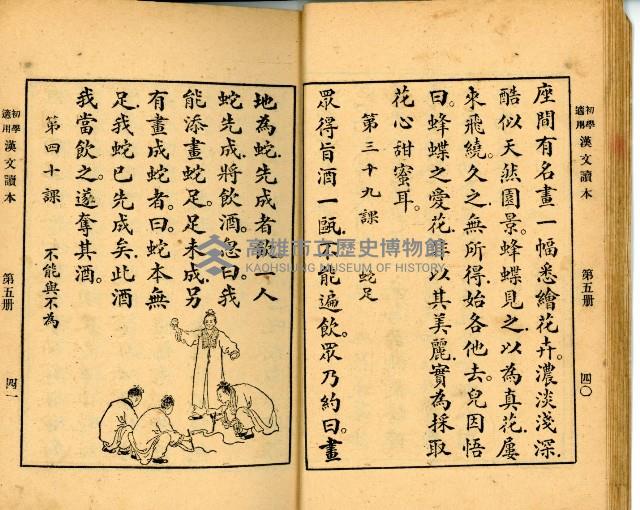 初學適用 漢文讀本 第五册 四〇
座間有名畫一幅悉繪花卉。濃淡淺深.
酷似天然園景。蜂蝶見之.以為真花.屢
來飛繞。久之無所得.始各他去。兒因悟
曰.蜂蝶之愛花.非以其美麗.實為採取
花心甜蜜耳。
第三十九課 蛇足
眾得旨酒一甌.不能遍飲。眾乃約曰.畫
地為蛇.先成者飲。一人
蛇先成.將飲酒.忽曰.我
能添畫蛇足。足未成.另
有畫成蛇者.曰.蛇本無
足.我蛇已先成矣.此酒
我當飲之。遂奪其酒。
第四十課 不能與不為
初學適用 漢文讀本 第五册 四一
高雄市立歷史博物館
KAOHSIUNG MUSEUM OF HISTORY